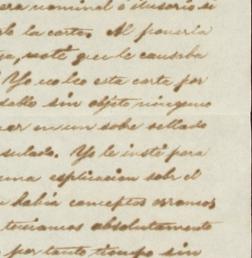 era nominal ó ilusorio si
la carta. Al ponerla
que le causaba
Yo no leo esta carta por
sin objeto ninguno
en un sobre sellado
Yo le insté para
una esplicacion sobre el
habia conceptos erroneos
teniamos absolutamente
por tanto tiempo sin